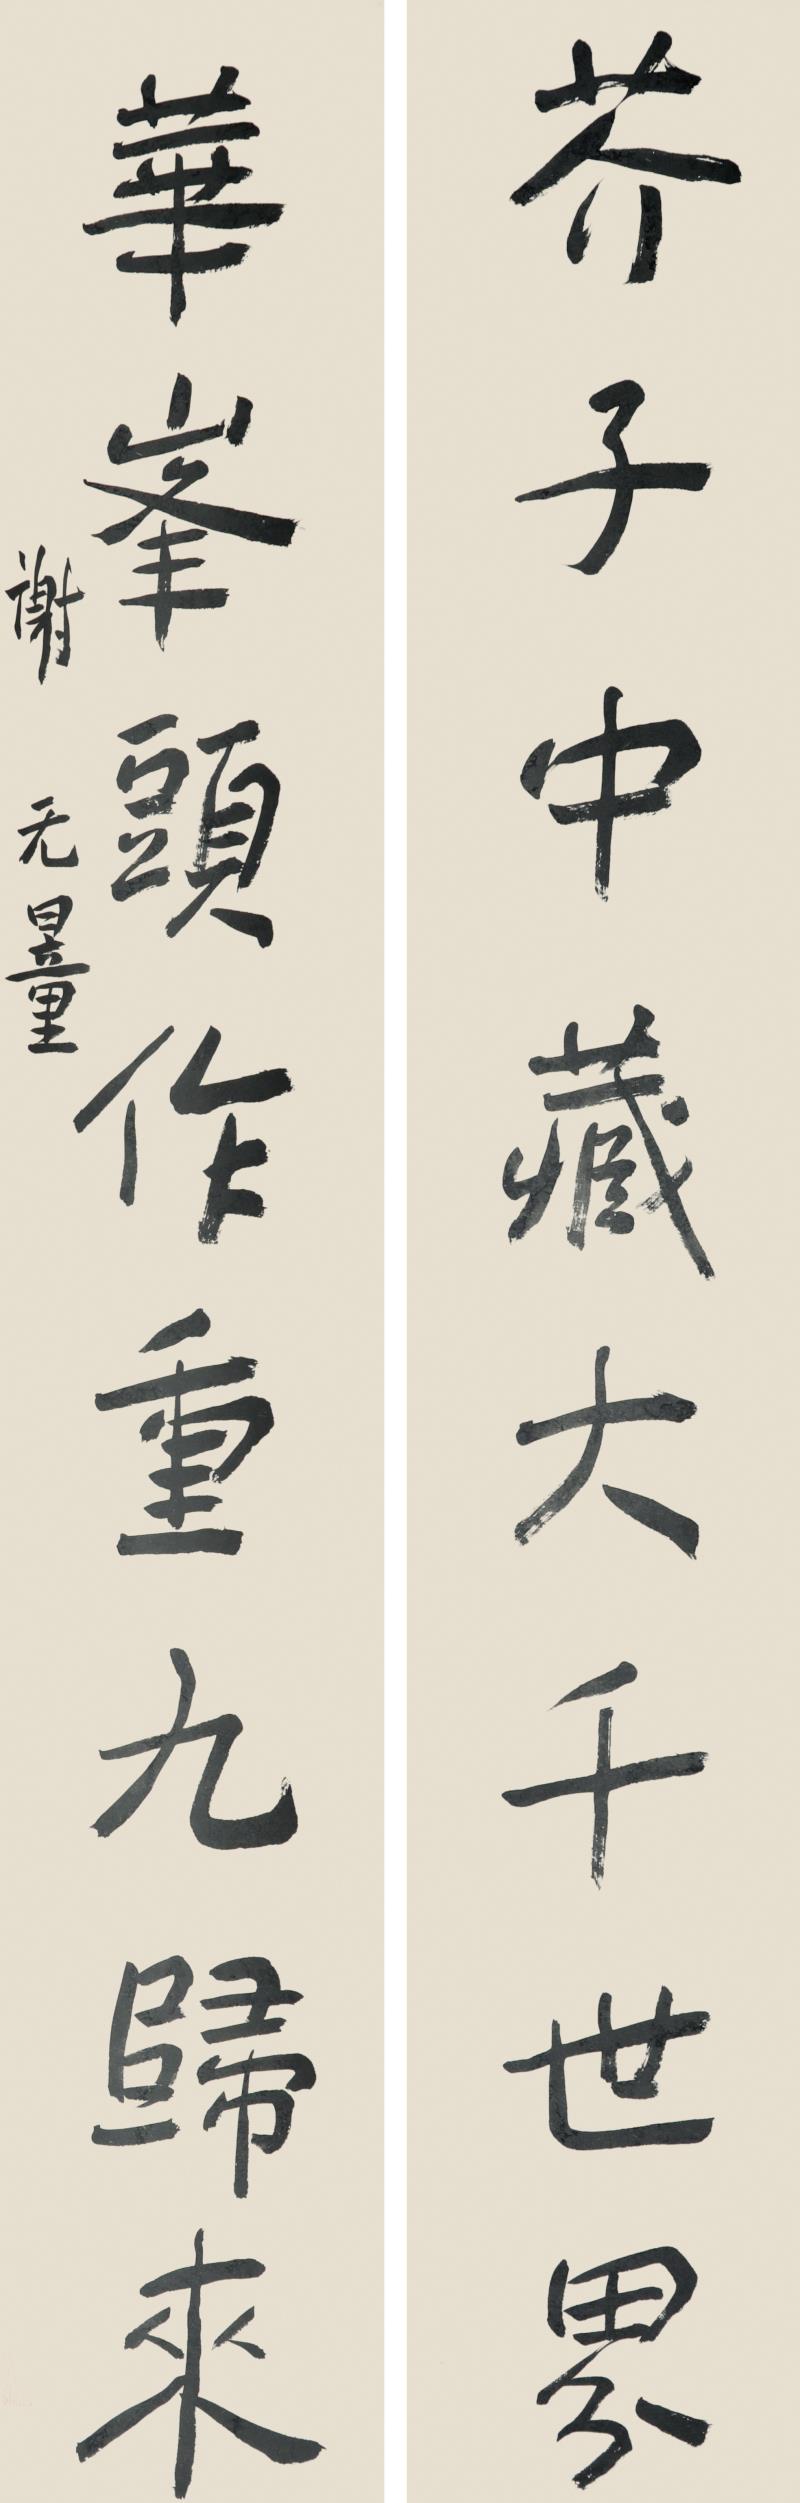 芥子中藏大千世界
華峯頭作重九歸來
謝无量